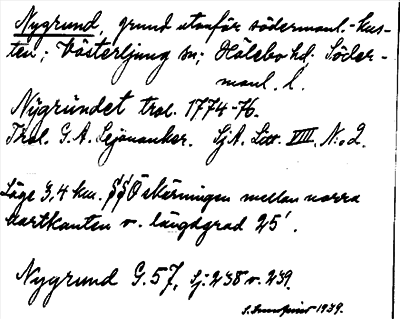 Nygrund, grund utanför södermanl.-kus-
ten; Västerljung sn; Hölebo hd; Söder-
manl. l.
Nygrundet trol. 1774-76.
Trol. G. A. Lejonanker. SjA. Litt. VIII. N:o 2.
Läge 3,4 km. SSÖ skärningen mellan norra
kartkanten o. längdgrad 25'.
Nygrund G. 57, Sj: 238 o. 239.
1939.